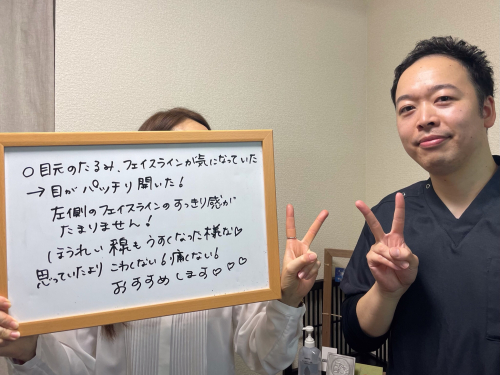 ○目元のたるみ、フェイスラインが気になっていた
→目がパッチリ開いた!
左側のフェイスラインのすっきり感が
たまりません!
ほうれい線もうすくなった様な♡
思っていたよりこわくない!痛くない!
おすすめします♡♡♡